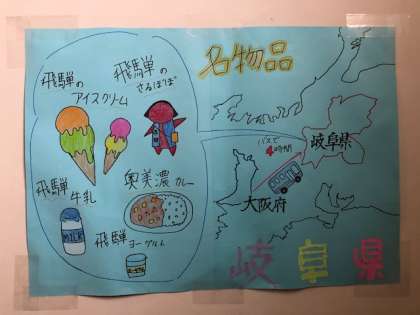 名物品
飛騨の
アイスクリーム
飛騨の
さるぼぼ
飛騨
牛乳
MILK
奥美濃カレー
飛騨
ヨーグルト
バスで
4時間
岐阜県
大阪府
岐阜県